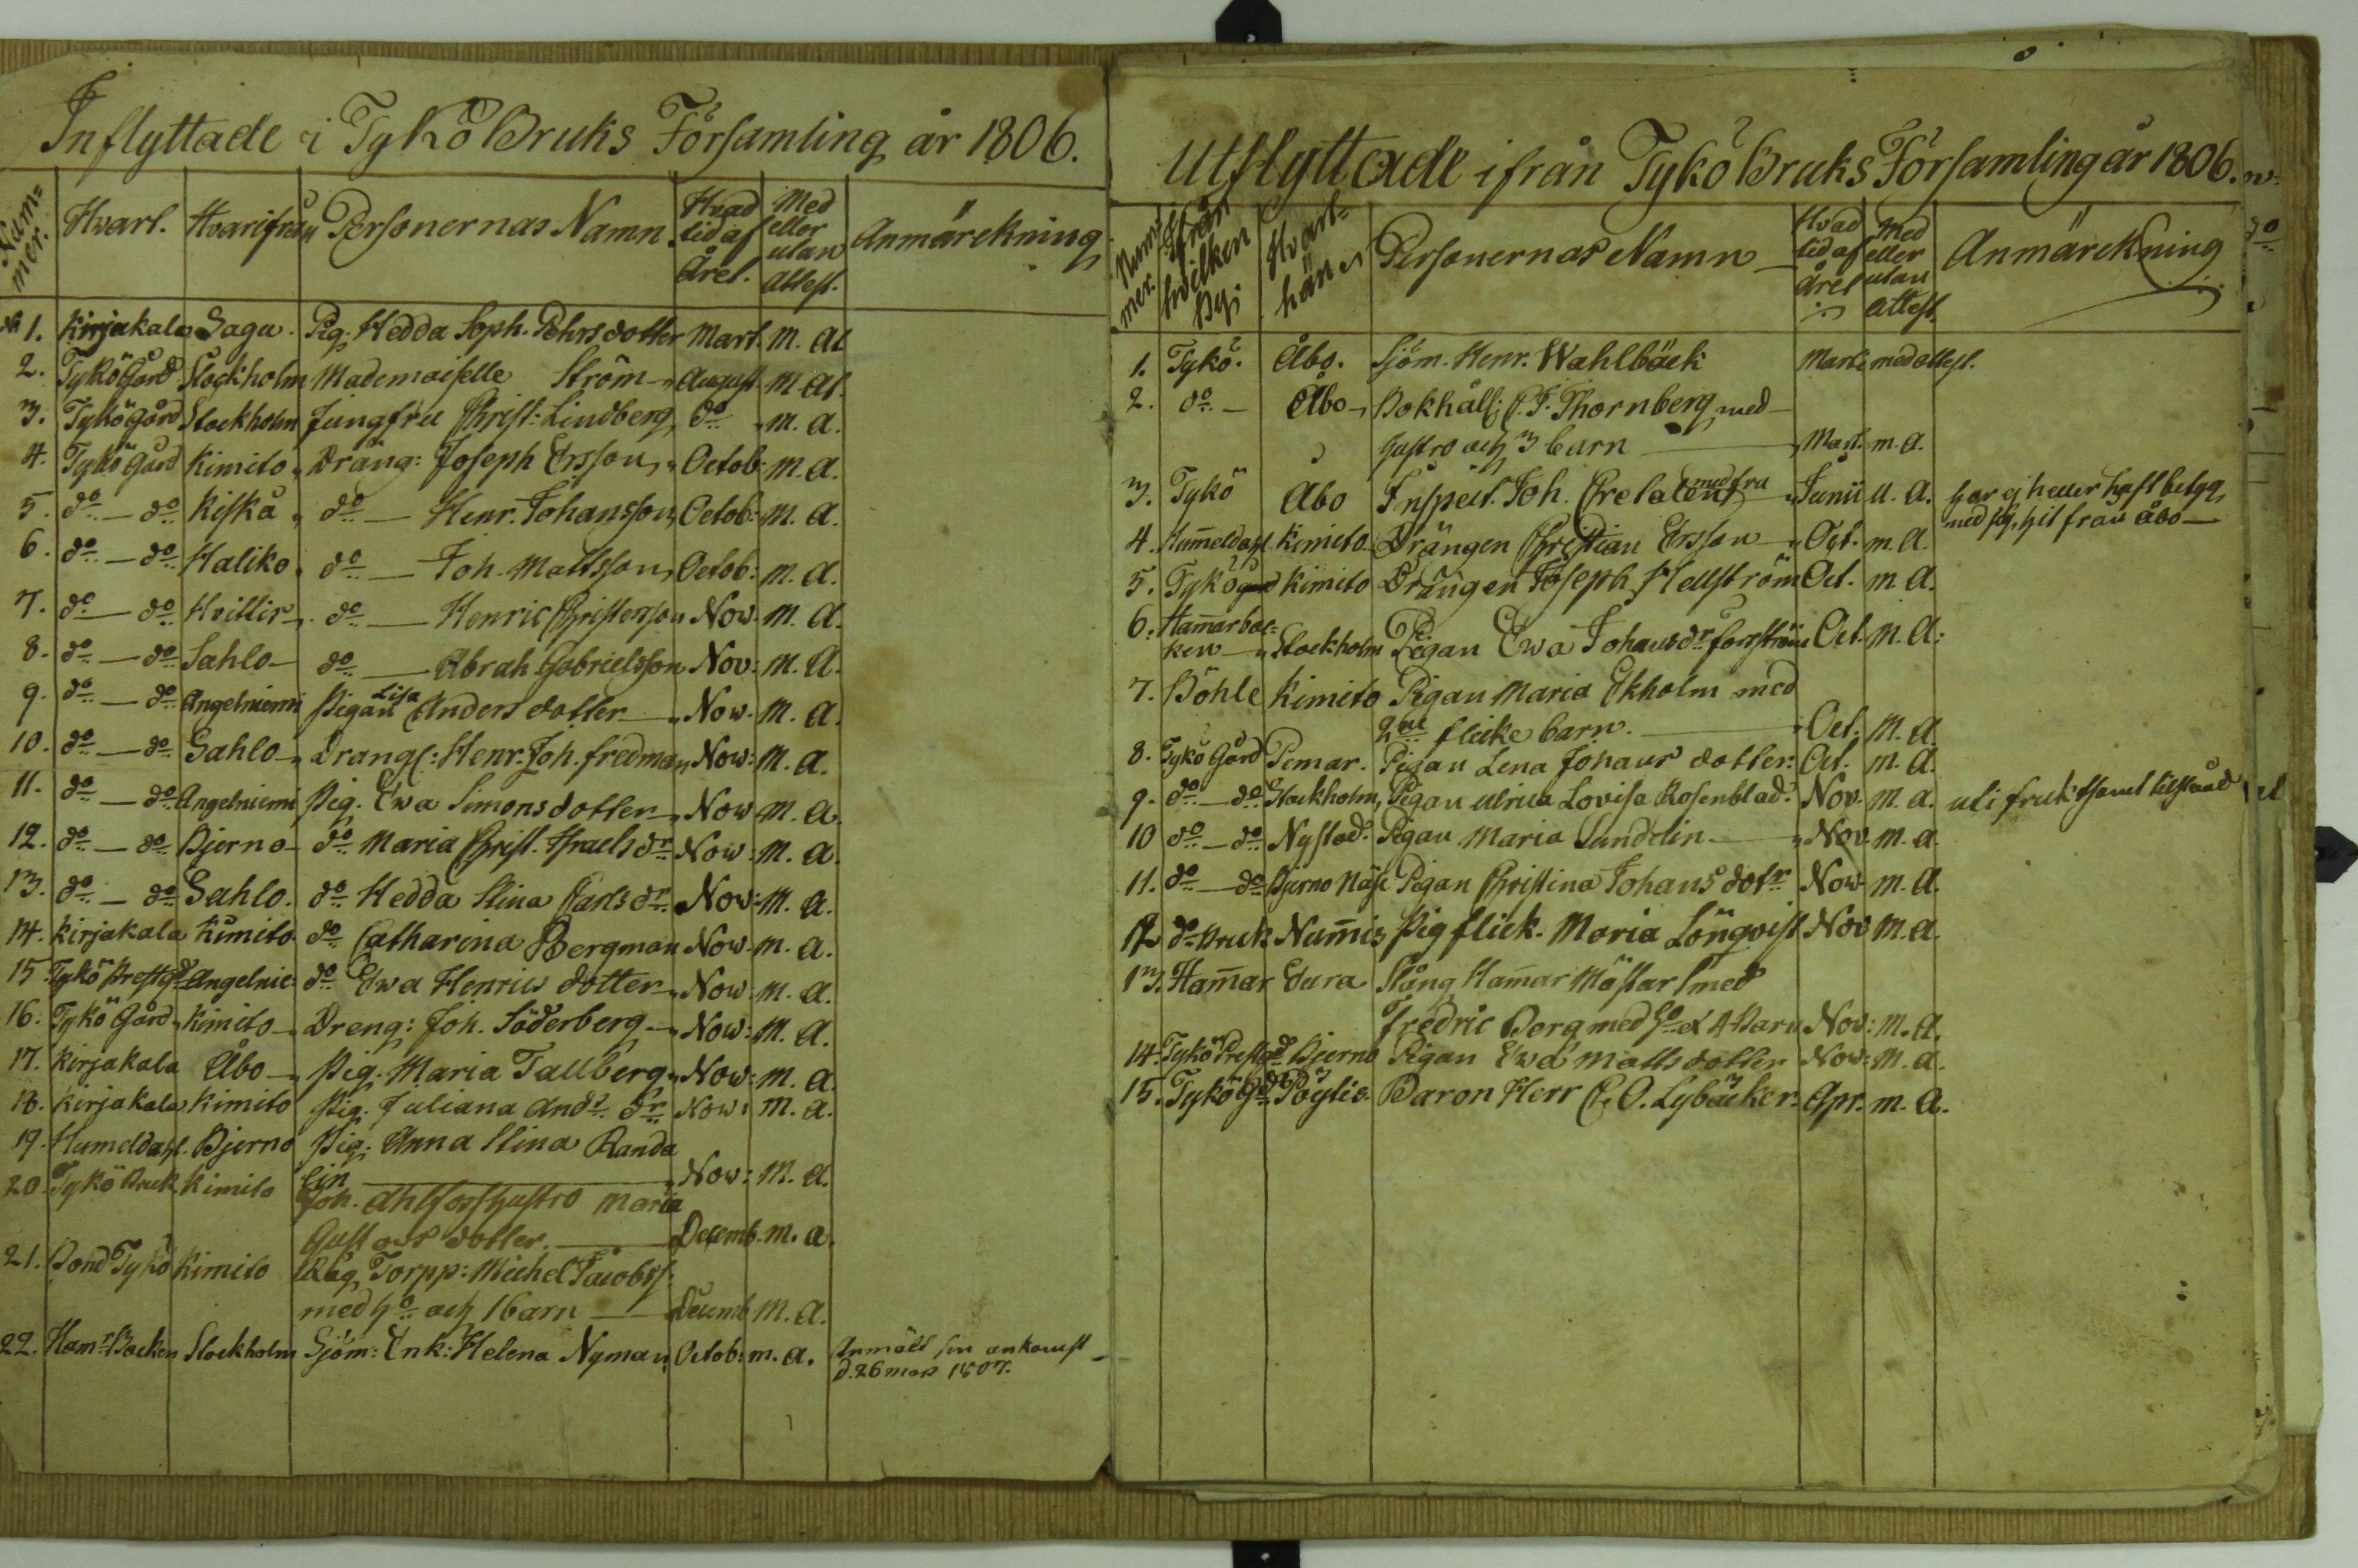 Inflyttade i Tykö Bruks Församling år 1806.
Num=
mer.
Hvart.
Hvarifrån
Personernas Namn.
Hvad
tid af
Året.
Med
eller
utan
attest.
Anmärckning
No 1. Kirjakala Sagu. Pig. Hedda Soph. Pehrsdotter Mart. M. At
2. Tykö Gård Stockholm Mademoiselle Ström August. M. At.
3. Tykö Gård Stockholm Jungfru Christ: Lindberg do M. A.
4. Tykö Gård Kimito Dräng: Joseph Ersson Octob: M. A.
5. do — do Kiskå do — Henr. Johansson Octob: M. A.
6. do — do Haliko do — Joh. Mattsson Octob: M. A.
7. do — do Hvittis do — Henric Christersson Now. M. A.
8. do — do Sahlo do — Abrah Gabrielsson Nov: M. A.
9. do — do Angelniemi Pigan Lisa Anders dotter Now. M. A.
10. do — do Sahlo Drang: Henr. Joh. Fredman Now: M. A.
11. do — do Angelniemi Pig. Ewa Simonsdotter Now M. A.
12. do — do Bjerno do Maria Christ. Israels dr Now: M. A.
13. do — do Sahlo. do Hedda Stina Carls dr Now: M. A.
14. Kirjakala Kimito do Catharina Bergman Now. M. A.
15 Tykö Prestgd Angelnie: do Ewa Henrics dotter Now. M. A.
16. Tykö Gård Kimito Dreng: Joh. Söderberg Now: M. A.
17. Kirjakala Åbo Pig. Maria Tallberg Now: M. A.
18. Kirjakala Kimito Pig. Juliana Ands dr Now: M. A.
19. Humeldahl. Bjerno Pig: Anna Stina Randa
lin Now: M. A.
20. Tykö Bruk Kimito Joh. Ahlfors Hustro Maria
Gustavs dotter. Decemb. M. A.
21. Bond Tykö Kimito Torpp: Michel Jacobss:
med ho och 1 barn Decemb M. A.
22. Hamr Backen Stockholm Sjöm: Enk: Helena Nyman Octob: m. a. Anmält sin ankomst
d. 26 mars 1807.
Utflyttade ifrån Tykö Bruks Församling år 1806.
Num=
mer.
Ifrån
hvilken
By;
Hvart=
hän
Personernas Namn
Hvad
tid af
året
Med
eller
utan
attest.
Anmärckning
1. Tykö. Åbo. Sjöm. Henr. Wahlbäck Marti med attest.
2. do — Åbo Bokhåll: C. J. Thornberg med
Hustro och 3 barn Mart. m. a.
3. Tykö Åbo Inspect. Joh. med fru Junii u. A. har ej heller haft betyg
med sig hit från Åbo
4. Humeldahl Kimito Drängen Christian Ersson Oct. m. A.
5. Tykö gård Kimito Drängen Joseph Hellström Oct. m. A.
6. Hamarbac=
ken Stockholm Pigan Ewa Johans dr Forsström Oct. M. A:
7. Böhle Kimito Pigan Maria Ekholm med
2ne flicke barn. Oct. M. A.
8. Tykö Gård Pemar. Pigan Lena Johans dotter: Oct. m. A.
9. do — do Stockholm, Pigan Ulrica Lovisa Rosenblad. Nov. M. a. uti fruktsamt tillstånd
10 do — do Nystad. Pigan Maria Sundelin Nov. M. a.
11. do — do Bjerno Näse Pigan Christina Johans dotr Now. M. A.
12 do Bruk Numis Pig flick. Maria Lönqvist Nov M. A.
13. Hamar Eura Stång Hamar Mästar Smed
Fredric Berg med ho & 4 Barn Nov: M. A.
14. Tykö Prestgd Bjerno Pigan Ewa Mattsdotter Now: M. A.
15. Tykö Gd Pöytis Baron Herr C. O. Lybäcker. Apr. m. A.